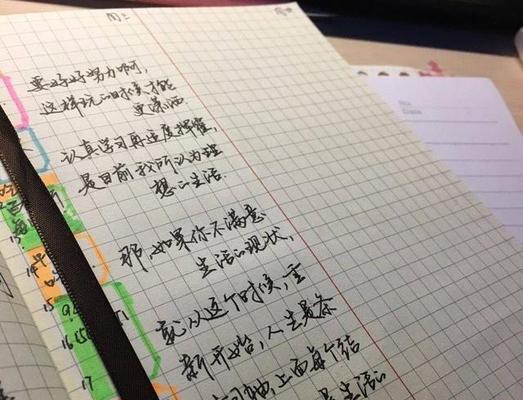 周二
要好好努力啊,
这样玩的时候才能
更潇洒.
认真学习再适度挥霍,
是目前我所认为理
想的生活.
那,如果你不满意
生活的现状,
就从这个时候,重
新开始,人生是条
时间轴,上面每个结
是生活的
14
15
16
17